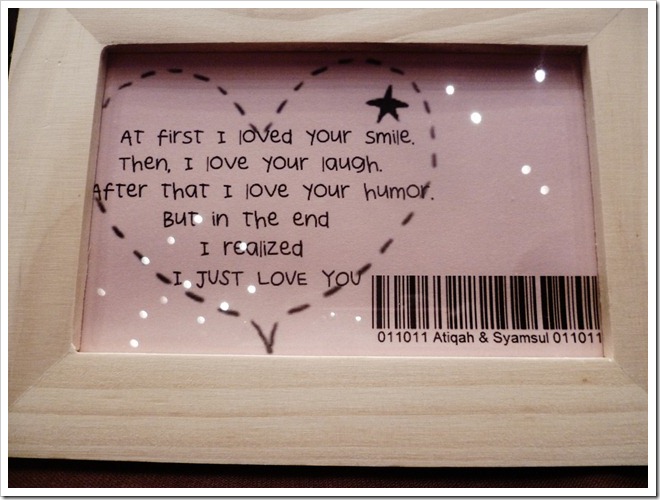 At first I loved your smile.
Then, I love your laugh.
After that I love your humor.
But in the end
I realized
I JUST LOVE YOU
011011 Atiqah & Syamsul 011011